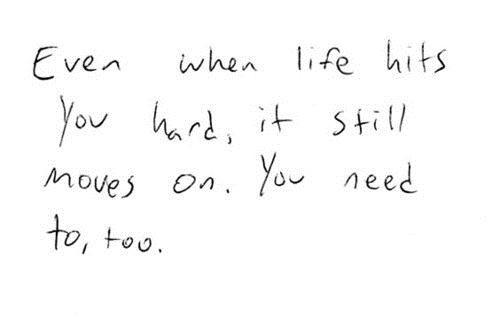 Even when life hits
You hard, it still
moves on. You need
to, too.